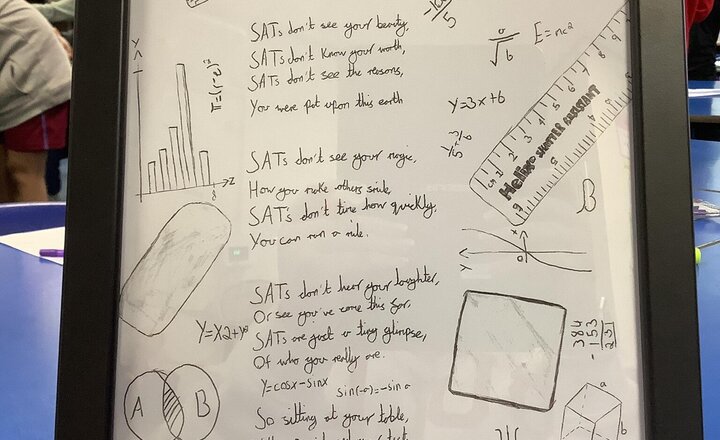 -100
5
SATs don't see your beauty,
SATs don't know your worth,
SATs don't see the reasons,
You were put upon this earth
a
√b
E=mc²
Y
Z
Y=3x+6
Helix SHATTER RESISTANT
B
SATs don't see your magic,
How you make others smile,
SATs don't time how quickly,
You can run a mile.
X
Y
0
SATs don't hear your laughter,
Or see you've come this far,
SATs are just a tiny glimpse,
Of who you really are.
Y=X2+y°
384
-153
231
Y=cosx-sinx
sin(-a)=-sin a
A B
a
b
So sitting at your table,